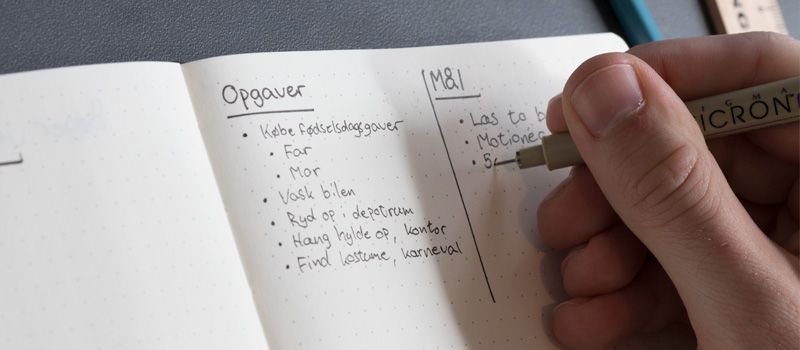 Opgaver
• Købe fødselsdagsgaver
• Far
• Mor
• Vask bilen
• Ryd op i depotrum
• Hæng hylde op, kontor
• Find kostume, karneval
M&I
• Læs to
• Motionér
• 5
MICRON